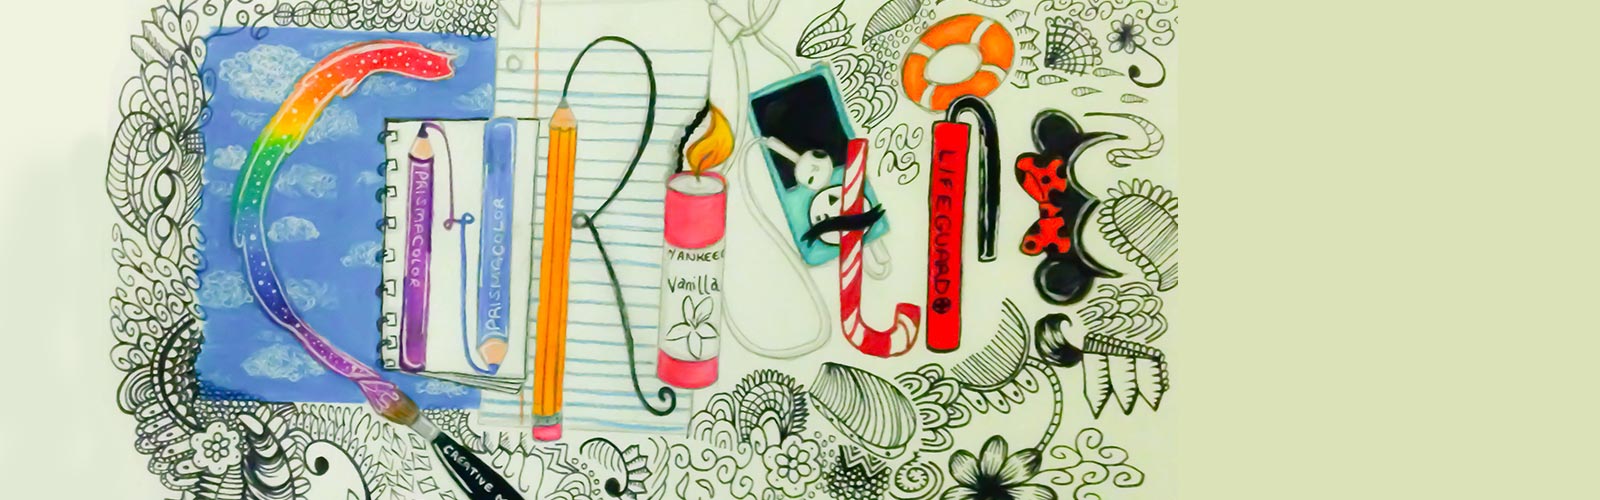 PRISMACOLOR
PRISMACOLOR
YANKEE
Vanilla
LIFEGUARD
CREATIVE